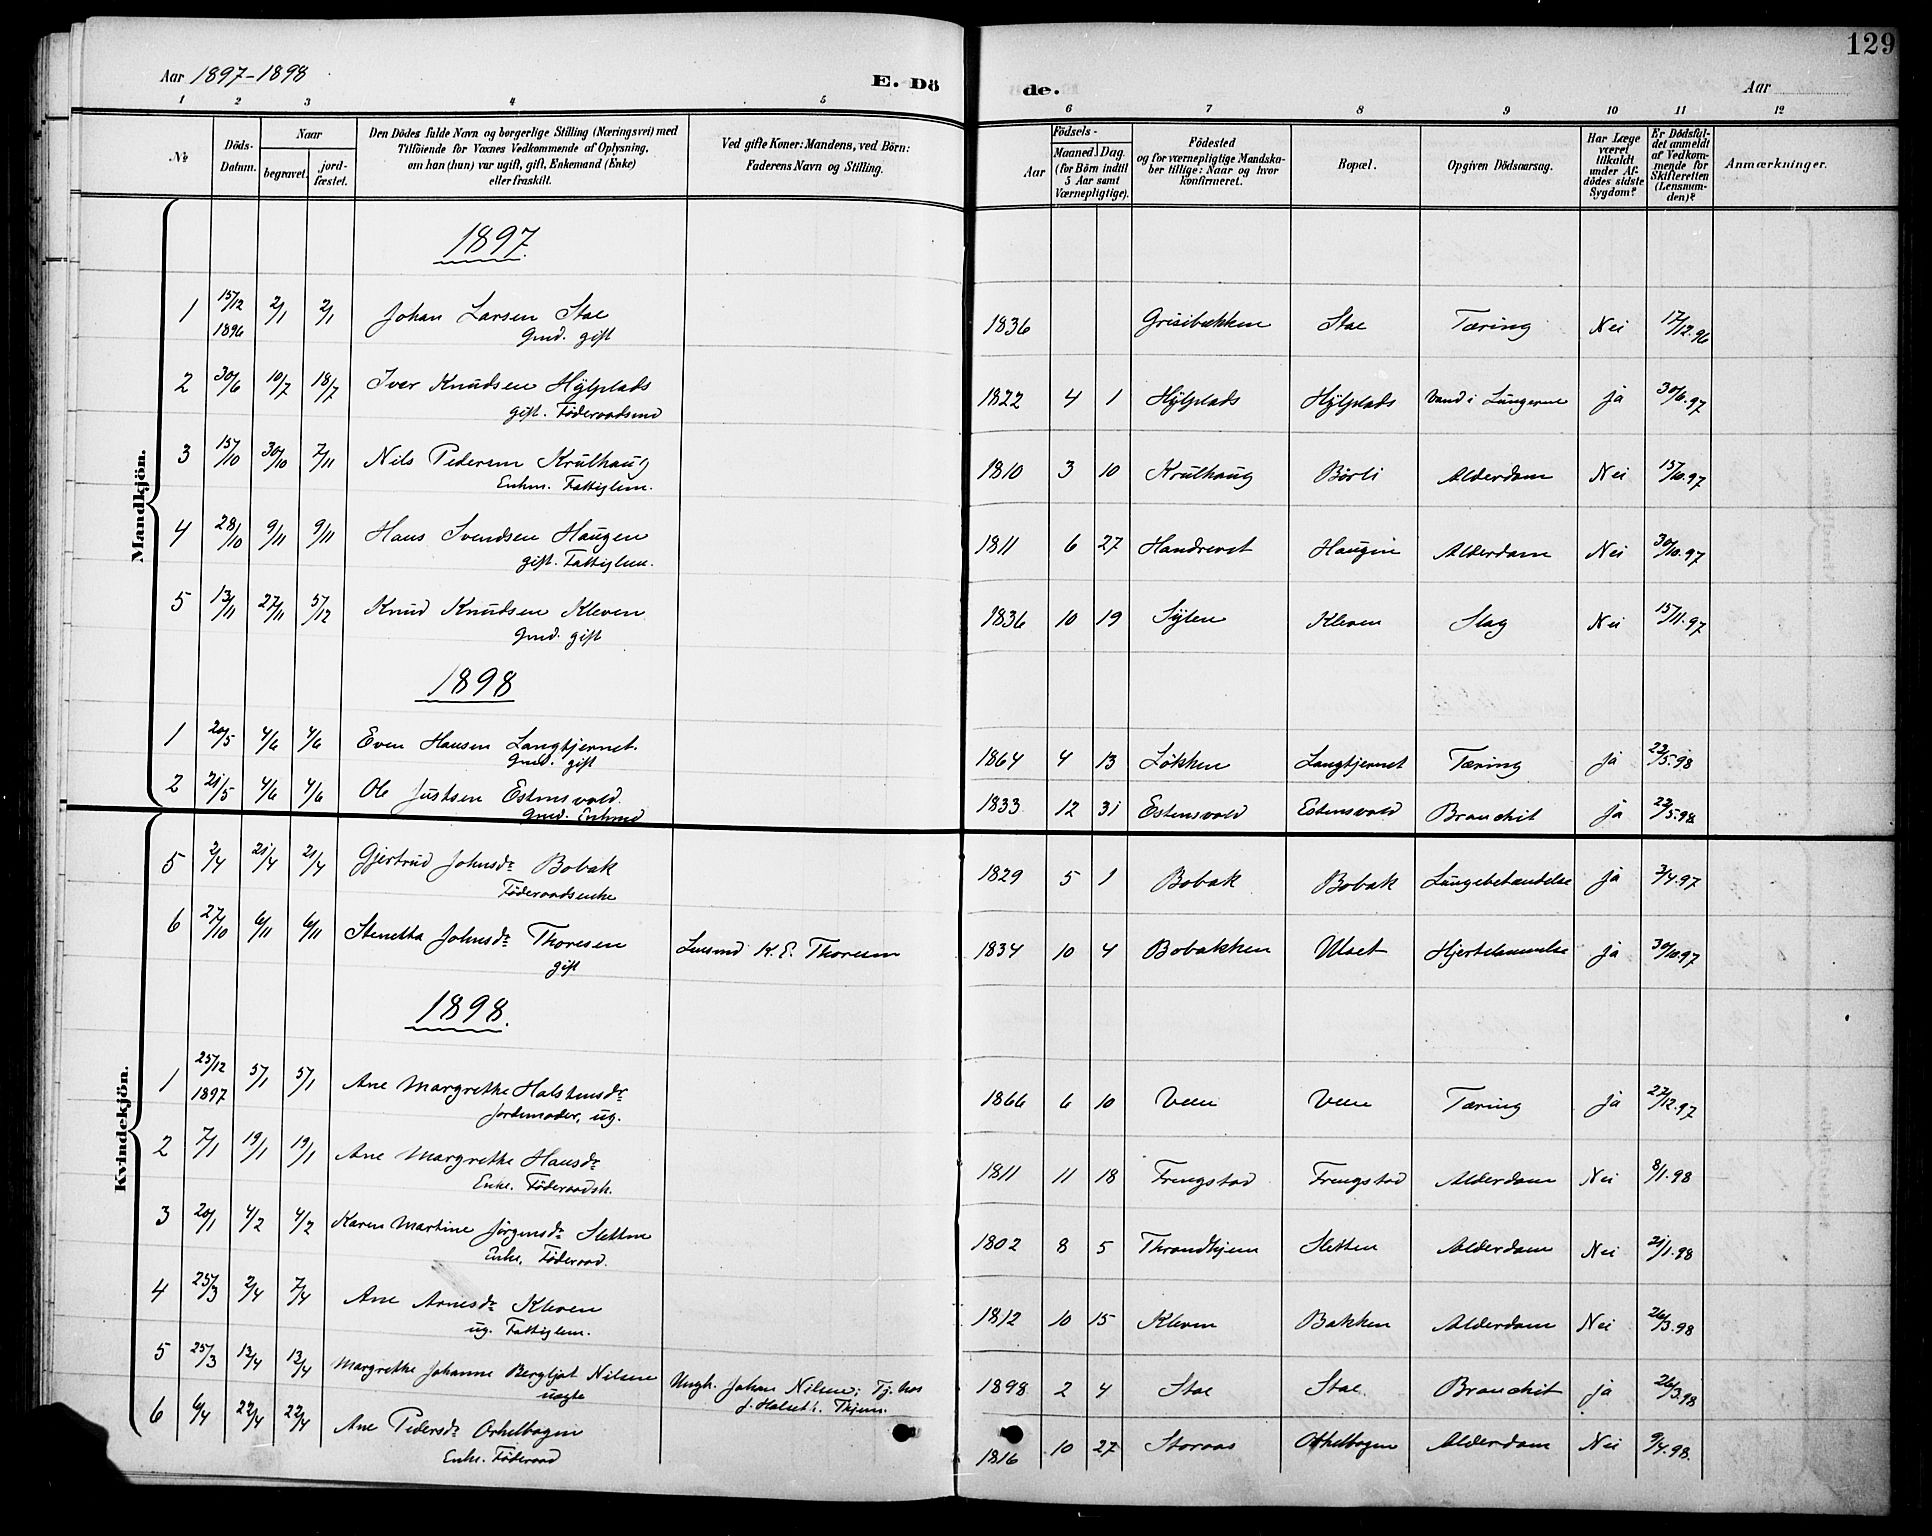 129
Aar 1897-1898
E. Dö
de.
Aar
1 2 3 4 5 6 7 8 9 10 11 12
№
Döds-Datum.
Naar
begravet.
jord-fæstet.
Den Dödes fulde Navn og borgerlige Stilling (Næringsvei) med
Tilföiende for Voxnes Vedkommende af Oplysning,
om han (hun) var ugift, gift, Enkemand (Enke)
eller fraskilt.
Ved gifte Koner: Mandens, ved Börn:
Faderens Navn og Stilling.
Födsels-
Aar
Maaned. Dag.
(for Börn indtil
5 Aar samt
Værnepligtige).
Födested
og for værnepligtige Mandska-
ber tillige: Naar og hvor
konfirmeret.
Bopæl.
Opgiven Dödsaarsag.
Har Læge
været
tilkaldt
under Af-
dödes sidste
Sygdom?
Er Dödsfal-
det anmeldt
af Vedkom-
mende for
Skifteretten
(Lensman-
den)?
Anmærkninger.
Mandkjön.
1897.
1 15/12 1896 2/1 2/1 Johan Larsen Stae 1836 Grisibækken Stae Tæring Nei 17/12.96
Gmd. gift
2 30/6 10/7 18/7 Iver Knudsen Hylplads 1822 4 1 Hylplads Hylplads Vand i Lungerne ja 30/6.97
gift. Föderaadsmd
3 15/10 30/10 7/11 Nils Pedersen Krulhaug 1810 3 10 Krulhaug Børli Alderdam Nei 15/10.97
Enkm. Fattiglem.
4 28/10 9/11 9/11 Hans Svendsen Haugen 1811 6 27 Haugen Alderdam Nei 30/10.97
gift. Fattiglem.
5 13/11 27/11 5/12 Knud Knudsen Kleven 1836 10 19 Sylen Kleven Slag Nei 15/11.97
Gmd. gift
1898
1 20/5 4/6 4/6 Even Hansen Langtjernet. 1864 4 13 Løkken Langtjernet Tæring ja 23/5.98
Gmd. gift
2 21/5 4/6 4/6 Ole Justsen Estensvold. 1833 12 31 Estensvold Estensvold Bronchit ja 22/5.98
Gmd. Enkmd
Kvindekjön.
5 2/4 21/4 21/4 Gjertrud Johnsdr Bobak 1829 5 1 Bobak Bobak Lungebetændelse ja 3/4.97
Föderaadsenke
6 27/10 6/11 6/11 Stenetta Johnsdr Thoresen Lensmd K. E. Thoresen 1834 10 4 Bobakken Ulset Hjertelammelse ja 30/10.97
gift
1898.
1 25/12 1897 5/1 5/1 Ane Margrethe Halstensdr 1866 6 10 Veen Veen Tæring ja 27/12.97
Jordemoder, ug.
2 7/1 19/1 19/1 Ane Margrethe Hansdr 1811 11 18 Frengstad Frengstad Alderdam Nei 8/1.98
Enke. Föderaadsk.
3 20/1 4/2 4/2 Karen Martine Jørgensdr Sletten 1802 8 5 Throndhjem Sletten Alderdam Nei 21/1.98
Enke, Föderaad.
4 25/3 2/4 7/4 Ane Arnesdr Kleven 1812 10 15 Kleven Bakken Alderdam Nei 26/3.98
ug. Fattiglem.
5 25/3 13/4 13/4 Margrethe Johanne Bergljot Nilsen Ungk. Johan Nilsen; Tj. hos 1898 2 4 Stae Stae Bronchit ja 26/3.98
uægte J. Halseth. Thjem.
6 6/4 22/4 22/4 Ane Pedersdr Orkelbogen 1816 10 27 Storaas Orkelbogen Alderdam Nei 9/4.98.
Enke. Föderaad